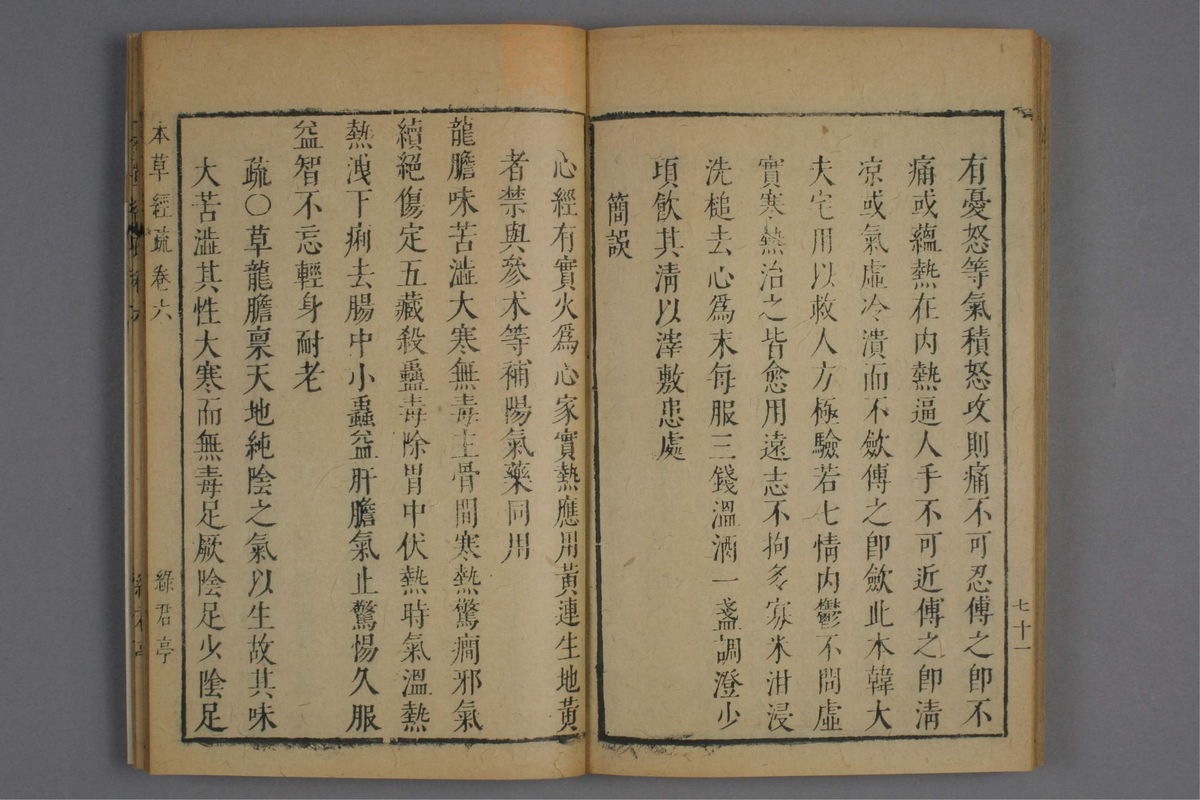 有憂怒等氣積怒攻則痛不可忍傅之卽不
痛或蘊熱在内熱逼人手不可近傅之卽淸
凉或氣虛冷潰而不斂傅之卽斂此本韓大
夫宅用以救人方極驗若七情内鬱不問虛
實寒熱治之皆愈用遠志不拘多寡米泔浸
洗槌去心爲末每服三錢溫酒一盞調澄少
頃飮其淸以滓敷患處
簡誤
七十一
心經有實火爲心家實熱應用黃連生地黃
者禁與參术等補陽氣藥同用
龍膽味苦澁大寒無毒主骨間寒熱驚癎邪氣
續絕傷定五藏殺蠱毒除胃中伏熱時氣溫熱
熱洩下痢去腸中小蟲益肝膽氣止驚惕久服
益智不忘輕身耐老
疏〇草龍膽稟天地純陰之氣以生故其味
大苦澁其性大寒而無毒足厥陰足少陰足
本草經疏卷六
綠君亭